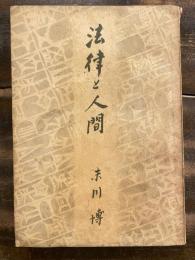 法律と人間
末川博